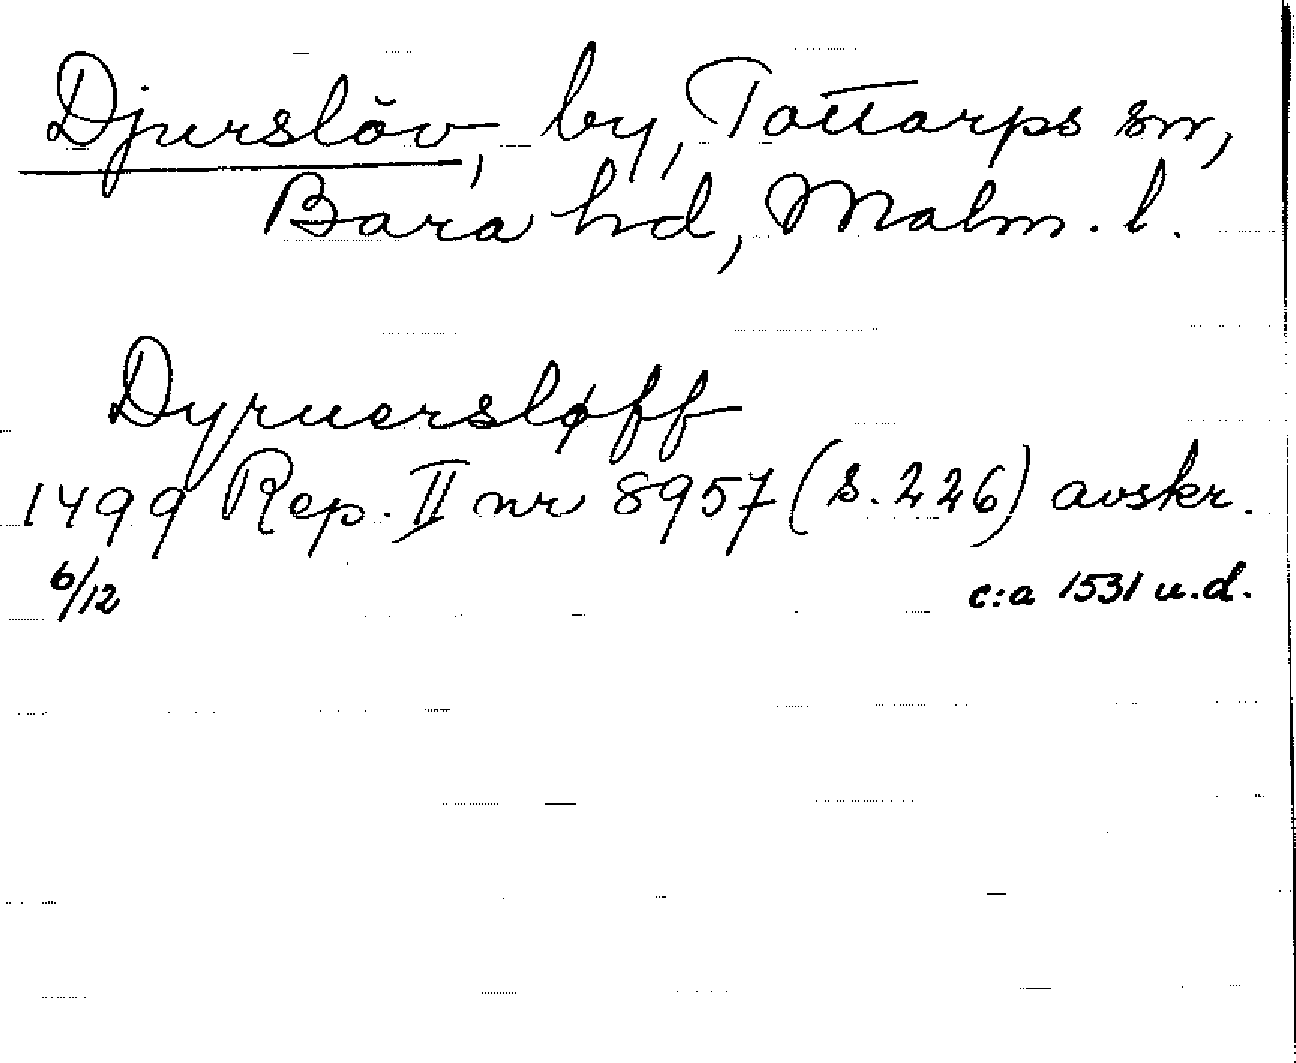 Djurslöv, by, Tottarps sn,
Bara hd, Malm. l.
Dyruersløff
1499 Rep. II nr 8957 (s. 226) avskr.
6/12 c:a 1531 u.d.